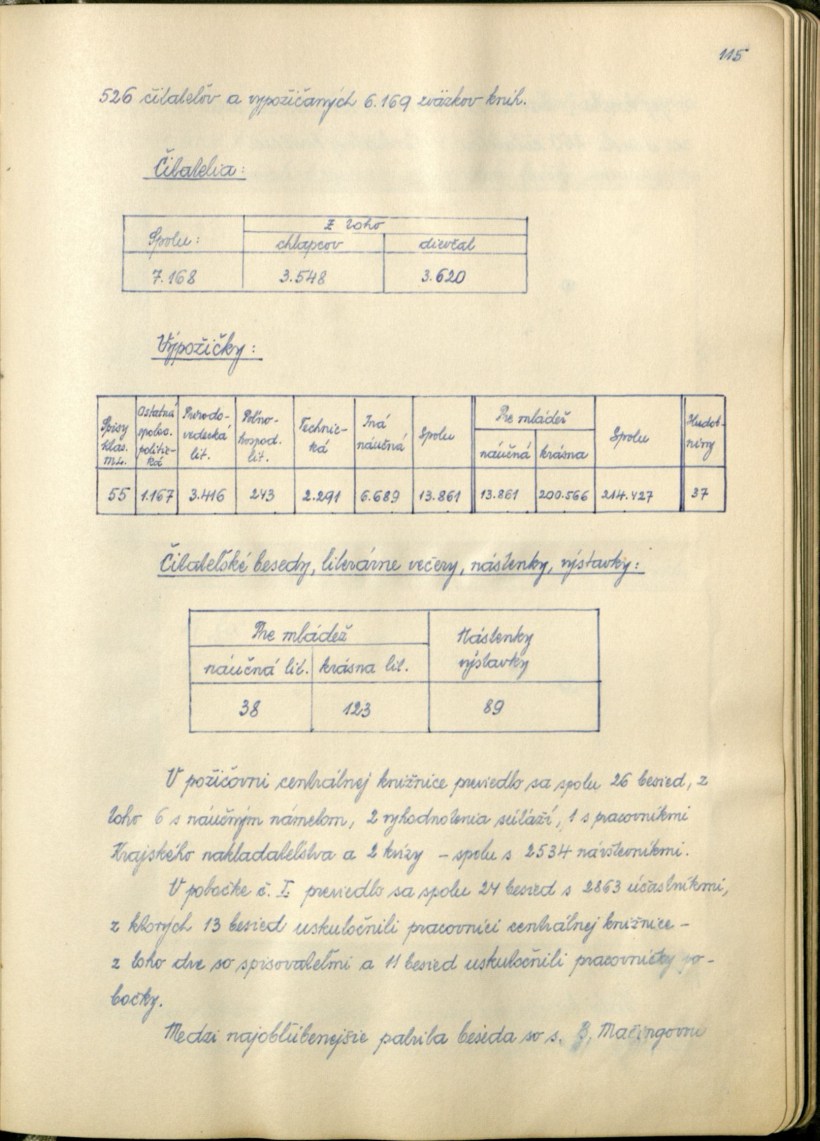 115
526 čitateľov a vypožičaných 6.169 zväzkov kníh.
Čitatelia:
Spolu: Z toho
chlapcov dievčat
7.168 3.548 3.620
Výpožičky:
Spisy klas. m.-l. Ostatná spoloč. politic-ká Prírodo-vedecká lit. Poľno-hospod. lit. Technic-ká Iná náučná Spolu Pre mládež Spolu Hudob-niny
náučná krásna
55 1.167 3.416 243 2.291 6.689 13.861 13.861 200.566 214.427 37
Čitateľské besedy, literárne večery, nástenky, výstavky:
Pre mládež Nástenky
náučná lit. krásna lit. výstavky
38 123 89
V požičovni centrálnej knižnice previedlo sa spolu 26 besied, z
toho 6 s náučným námetom, 2 vyhodnotenia súťaží, 1 s pracovníkmi
Krajského nakladateľstva a 2 kvízy – spolu s 2534 návštevníkmi.
V pobočke č. I. previedlo sa spolu 24 besied s 2863 účastníkmi,
z ktorých 13 besied uskutočnili pracovníci centrálnej knižnice –
z toho dve so spisovateľmi a 11 besied uskutočnili pracovníčky po-
bočky.
Medzi najobľúbenejšie patrila beseda so s.